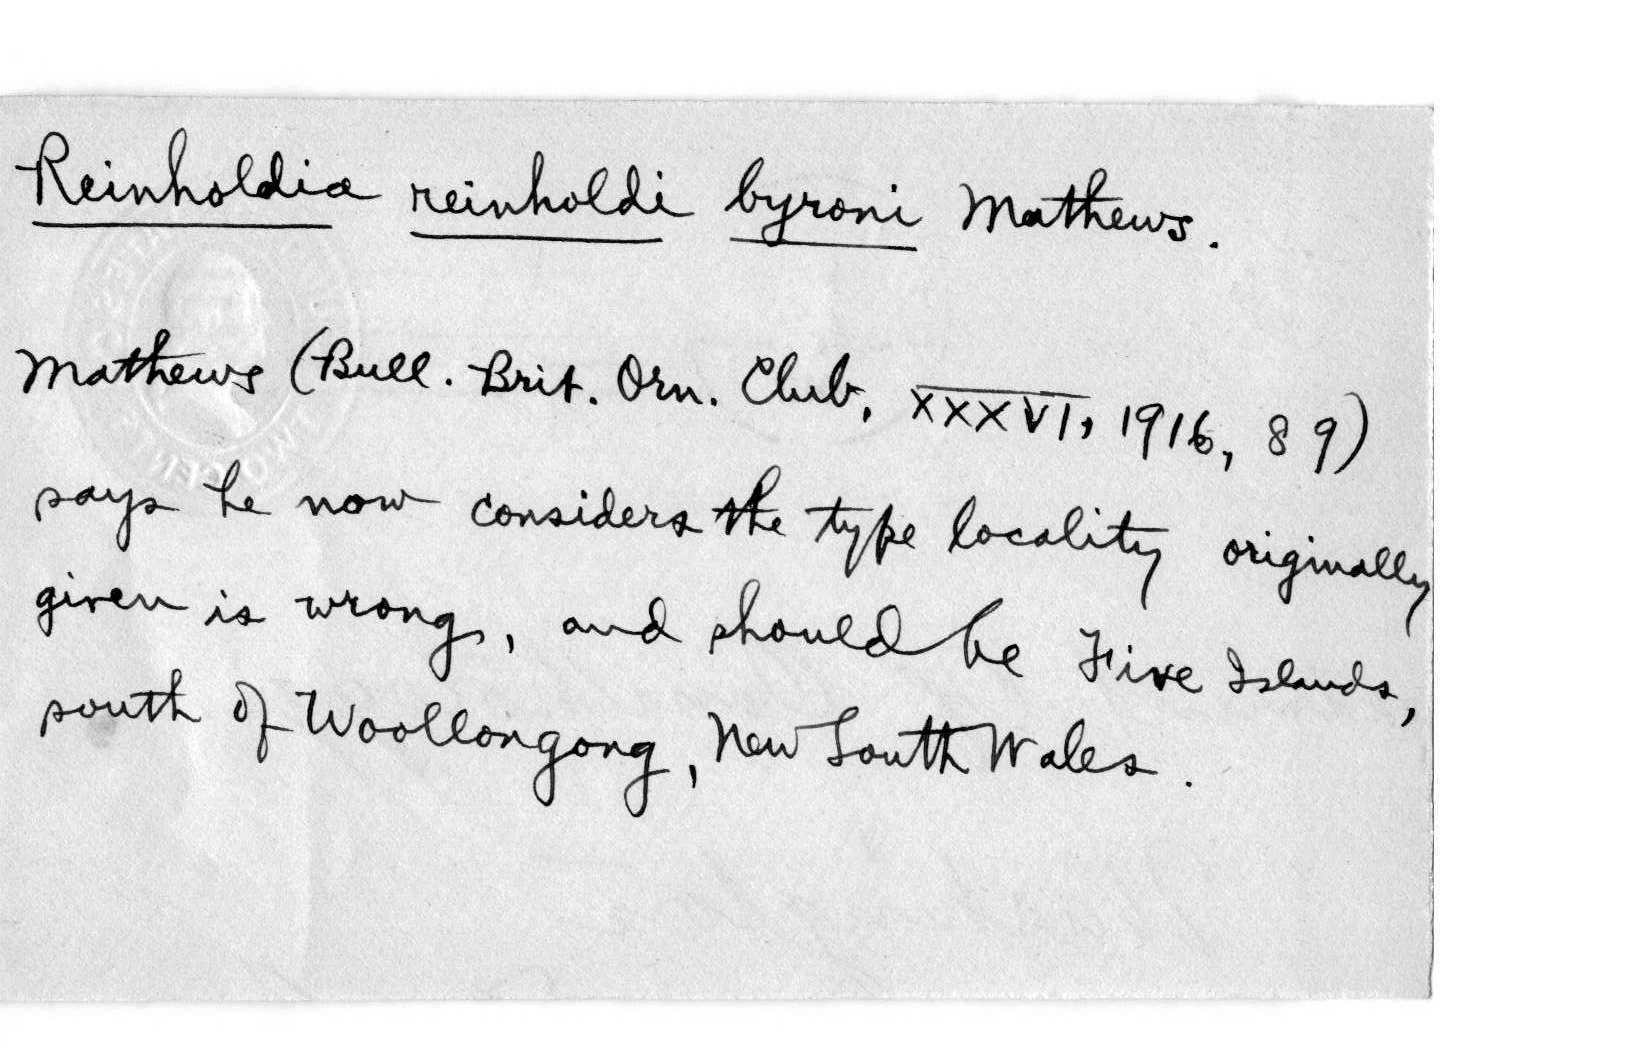 Reinholdia reinholdi byroni Mathews.
Mathews (Bull. Brit. Orn. Club, XXXVI, 1916, 89)
says he now considers the type locality originally
given is wrong, and should be Five Islands,
south of Woollongong, New South Wales.